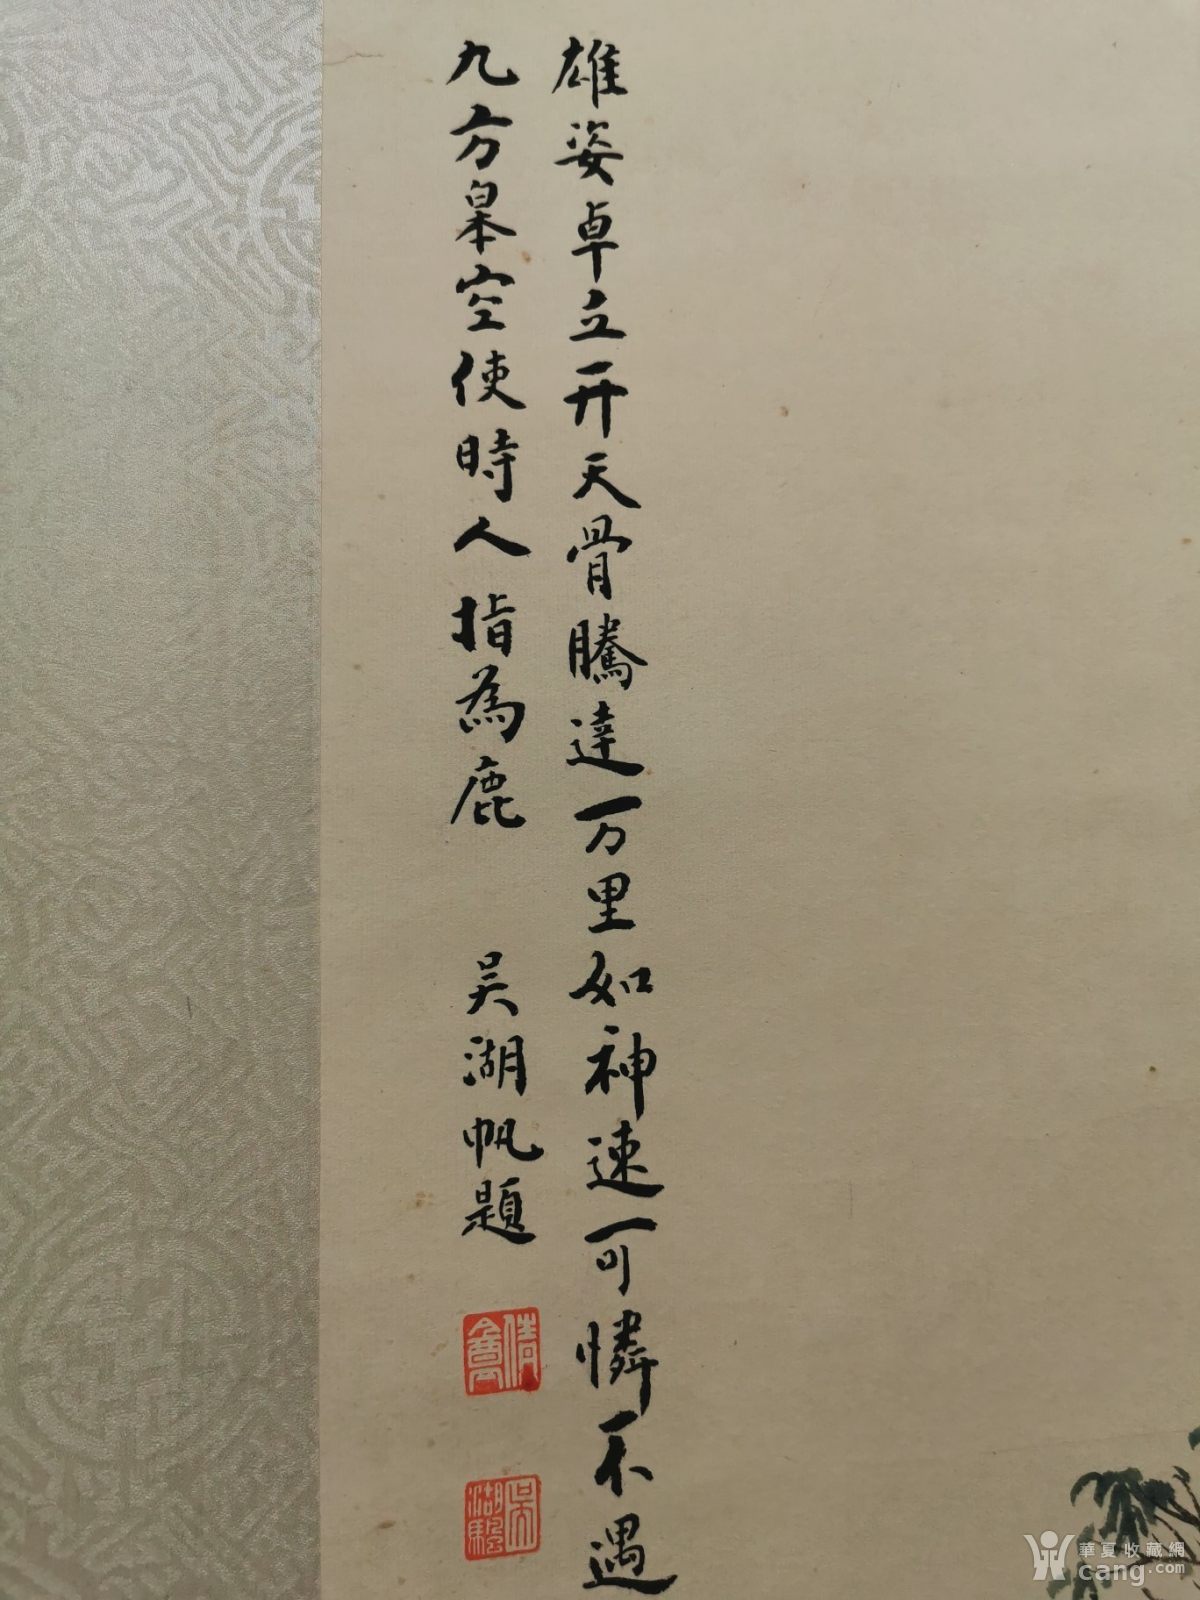 雄姿卓立开天骨騰達万里如神速可憐不遇
九方皋空使時人指為鹿
吳湖帆題
倩庵
吳湖驂
華夏收藏網
cang.com